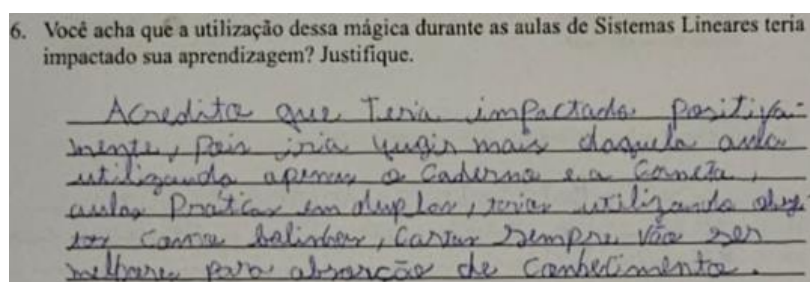 6. Você acha que a utilização dessa mágica durante as aulas de Sistemas Lineares teria
impactado sua aprendizagem? Justifique.
Acredito que Teria impactado positiva-
mente, pois iria fugir mais daquela aula
utilizando apenas o Caderno e a Caneta,
aulas Praticas em duplas, utilizando obje-
tos como balinhas, Cartas sempre vão ser
melhores para absorção de Conhecimento.